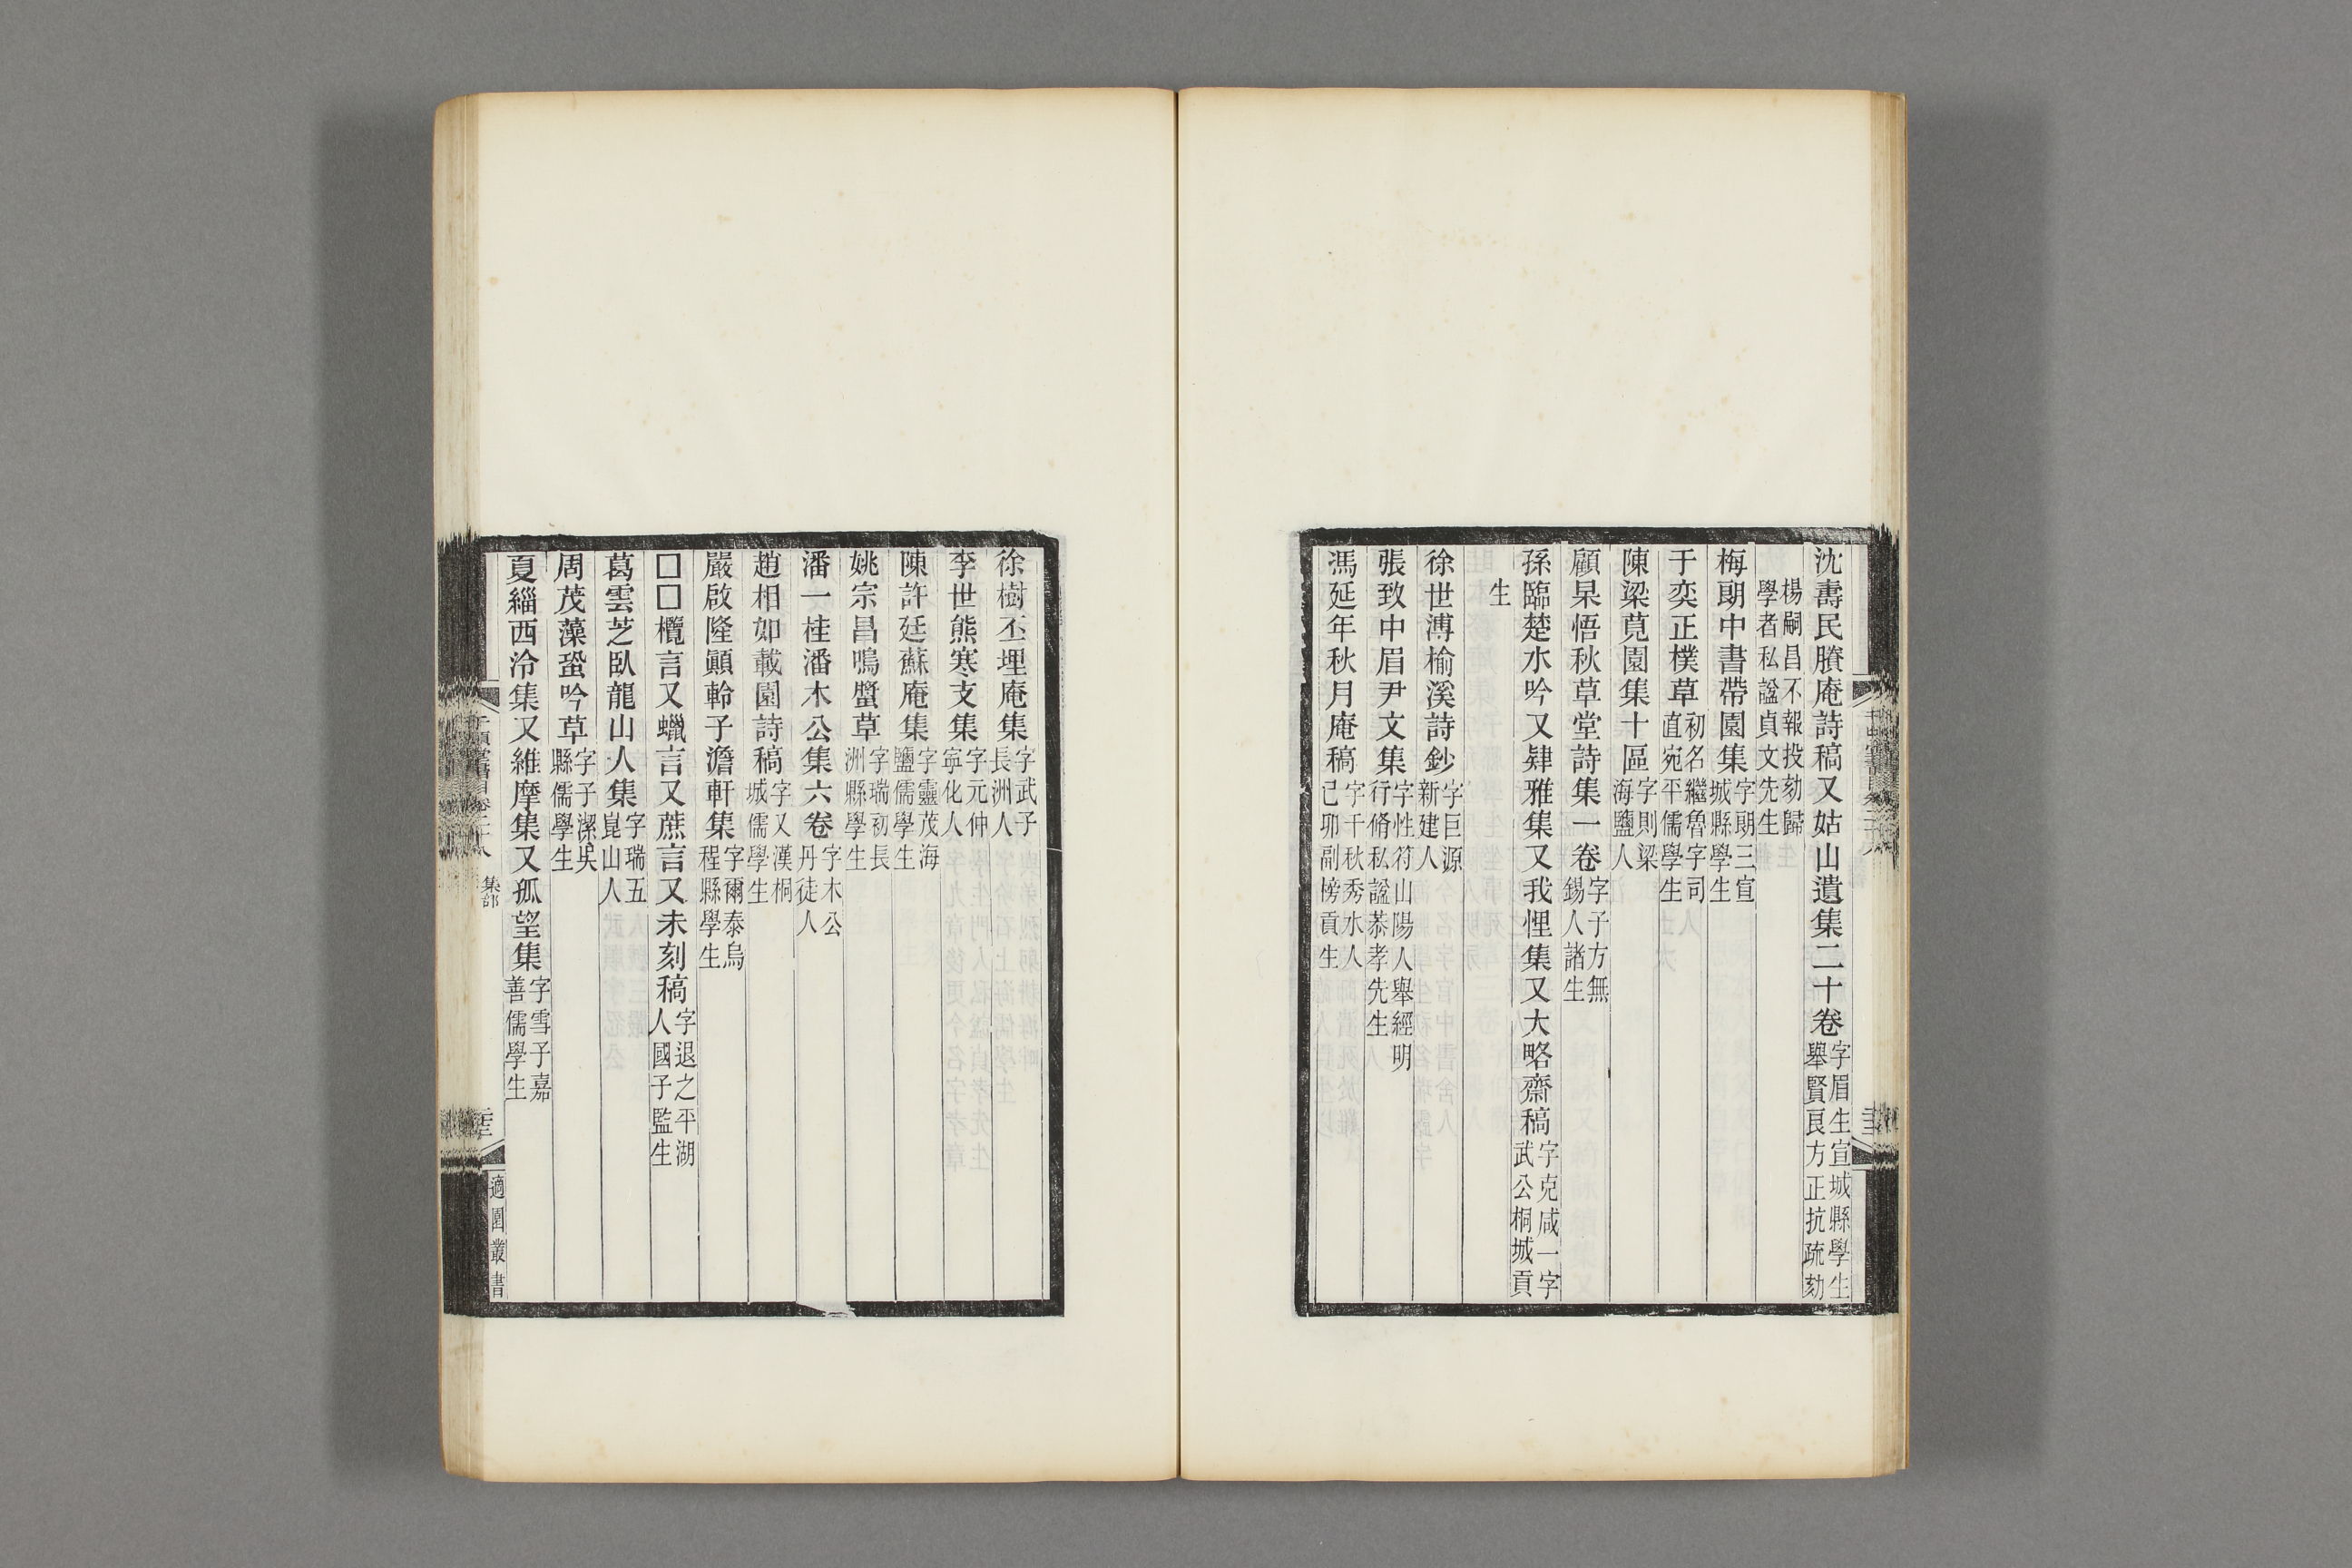 沈壽民賸庵詩稿又姑山遺集二十卷字眉生宣城縣學生舉賢良方正抗疏劾
楊嗣昌不報投劾歸學者私謚貞文先生
梅朗中書帶園集字朗三宣城縣學生
于奕正樸草初名繼魯字司直宛平儒學生
陳梁莧園集十區字則梁海鹽人
顧杲悟秋草堂詩集一卷字子方無錫人諸生
孫臨楚水吟又肄雅集又我悝集又大略齋稿字克咸一字武公桐城貢
生
徐世溥榆溪詩鈔字巨源新建人
張致中眉尹文集字性符山陽人舉經明行脩私謚恭孝先生
馮延年秋月庵稿字千秋秀水人已卯副榜貢生
徐樹丕埋庵集字武子長洲人
李世熊寒支集字元仲寧化人
陳許廷蘇庵集字靈茂海鹽儒學生
姚宗昌鳴蜇草字瑞初長洲縣學生
潘一桂潘木公集六卷字木公丹徒人
趙相如載園詩稿字又漢桐城儒學生
嚴啟隆顚軨子澹軒集字爾泰烏程縣學生
□□欖言又蠟言又蔗言又未刻稿字退之平湖人國子監生
葛雲芝臥龍山人集字瑞五崑山人
周茂藻蛩吟草字子潔吳縣儒學生
夏緇西泠集又維摩集又孤望集字雪子嘉善儒學生
集部
適園叢書